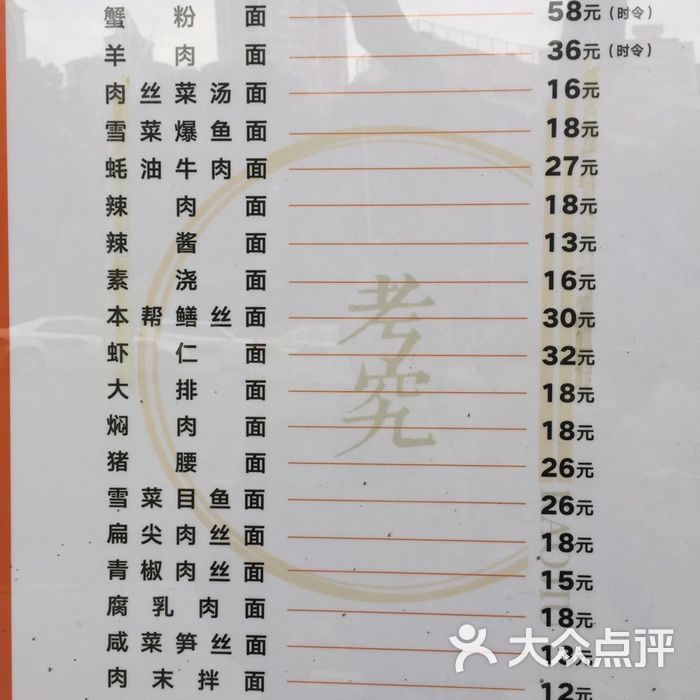 蟹粉面 58元（时令）
羊肉面 36元（时令）
肉丝菜汤面 16元
雪菜爆鱼面 18元
蚝油牛肉面 27元
辣肉面 18元
辣酱面 13元
素浇面 16元
本帮鳝丝面 30元
虾仁面 32元
大排面 18元
焖肉面 18元
猪腰面 26元
雪菜目鱼面 26元
扁尖肉丝面 18元
青椒肉丝面 15元
腐乳肉面 18元
咸菜笋丝面 13元
肉末拌面 12元
考究
大众点评